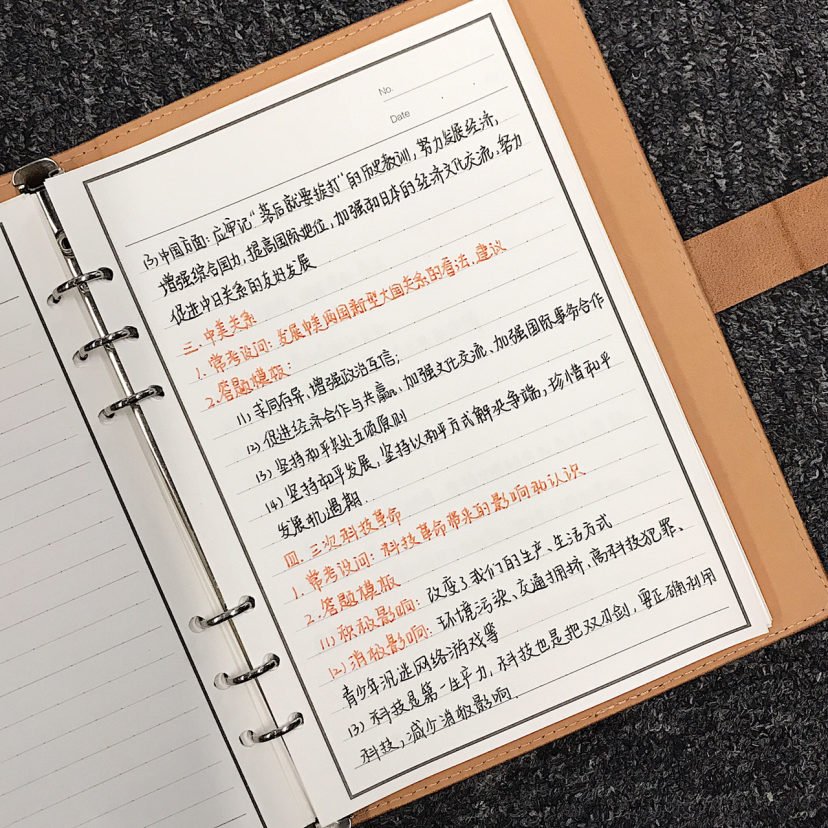 No.
Date
(3)中国方面:应牢记“落后就要挨打”的历史教训,努力发展经济,
增强综合国力,提高国际地位,加强和日本的经济文化交流,努力
促进中日关系的友好发展
三.中美关系
1.常考设问:发展中美两国新型大国关系的看法、建议
2.答题模板:
(1)求同存异,增强政治互信;
(2)促进经济合作与共赢、加强文化交流、加强国际事务合作
(3)坚持和平共处五项原则
(4)坚持和平发展,坚持以和平方式解决争端,珍惜和平
发展机遇期.
四.三次科技革命
1.常考设问:科技革命带来的影响和认识
2.答题模板
(1)积极影响:改变了我们的生产、生活方式
(2)消极影响:环境污染、交通拥挤、高科技犯罪、
青少年沉迷网络游戏等
(3)科技是第一生产力,科技也是把双刃剑,要正确利用
科技,减少消极影响.